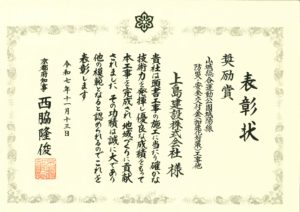 表彰状
奨励賞
山城総合運動公園城陽線
防災・安全交付金(加速化対策)工事他
上島建設株式会社 様
貴社は頭書工事の施工に当たり確かな
技術力を発揮し優良な成績をもって
本工事を完成され地域づくりに貢献
されました その功績は誠に大であり
他の規範となると認められるのでこれを
表彰します
令和七年十一月十三日
京都府知事 西脇隆俊